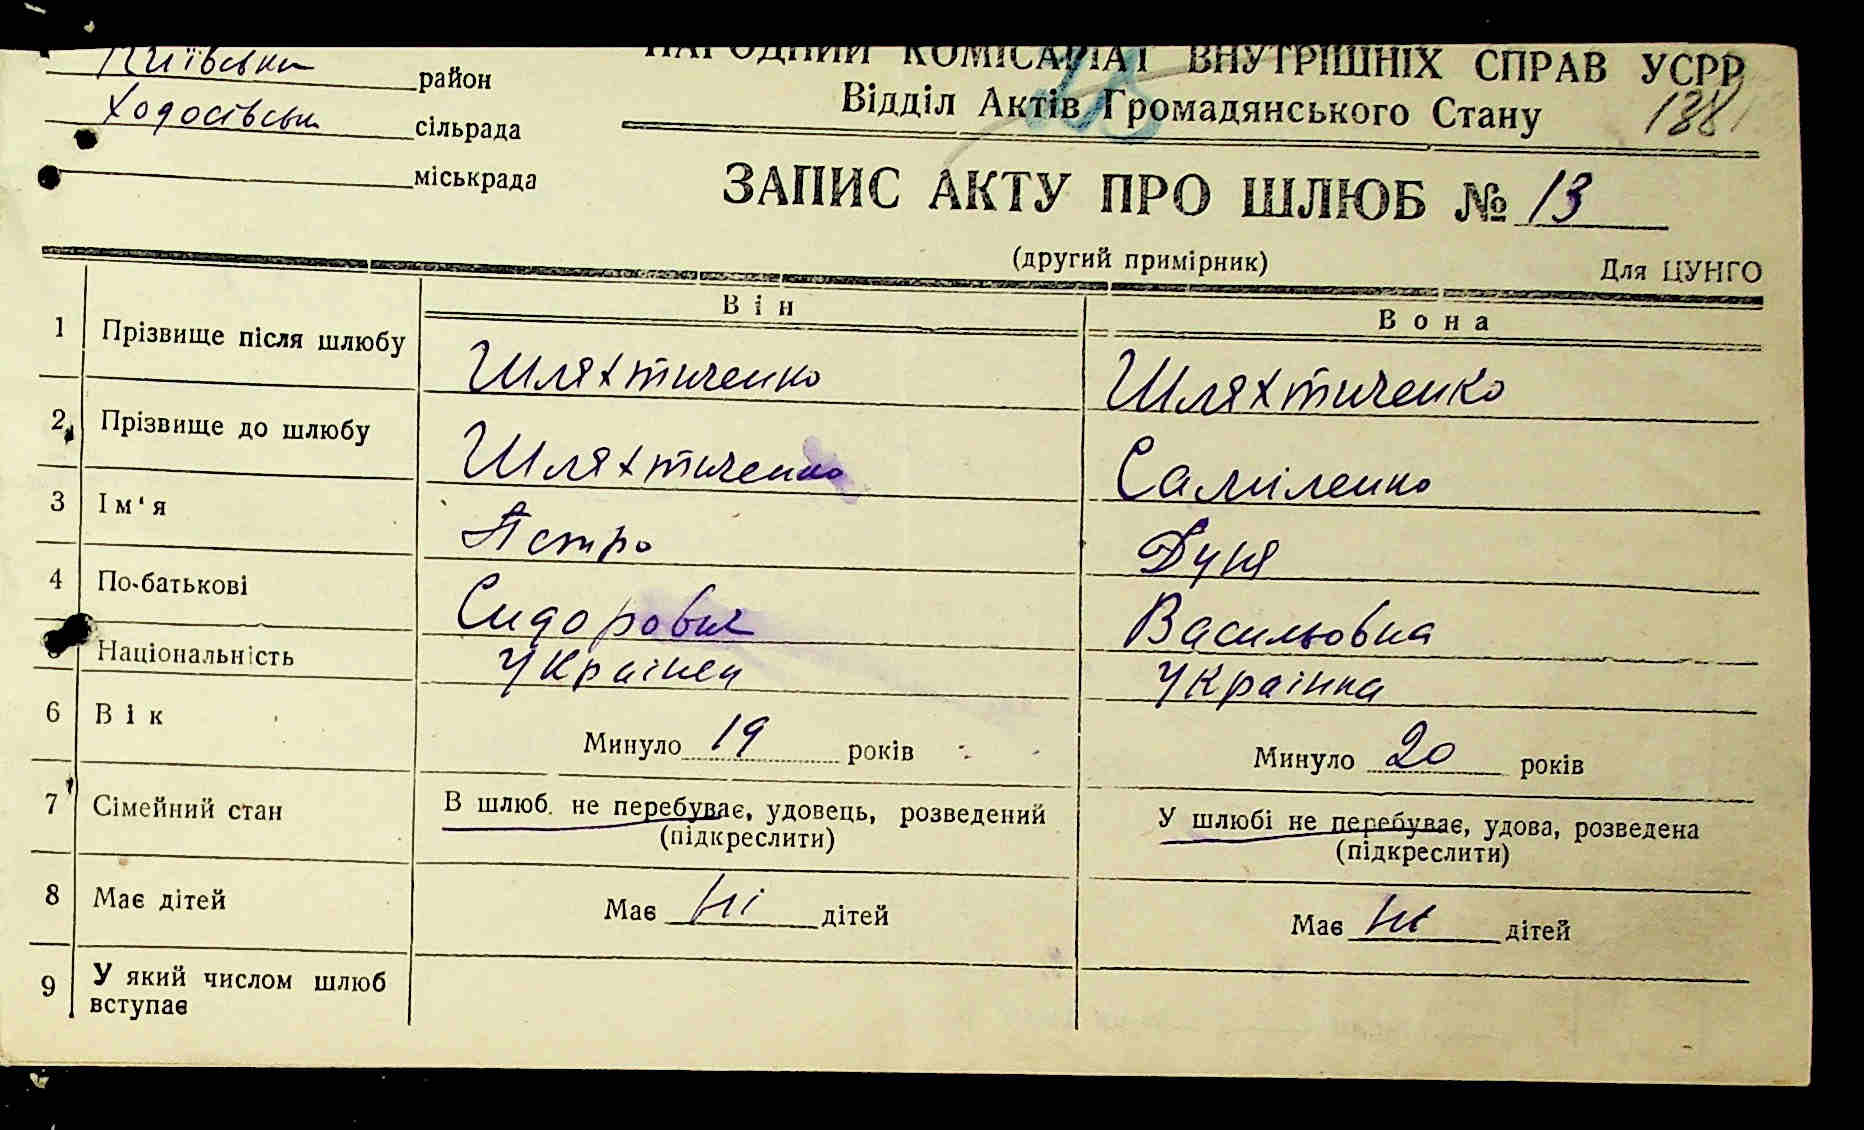 Київська район
Ходосівськ сільрада
міськрада
НАРОДНИЙ КОМІСАРІАТ ВНУТРІШНІХ СПРАВ УСРР
Відділ Актів Громадянського Стану
188
ЗАПИС АКТУ ПРО ШЛЮБ № 13
(другий примірник)
Для ЦУНГО
Він Вона
1 Прізвище після шлюбу Шляхтиченко Шляхтиченко
2 Прізвище до шлюбу Шляхтиченко Саміленко
3 Ім'я Петро Дуня
4 По-батькові Сидорович Васильовна
5 Національність Українец Українка
6 Вік Минуло 19 років Минуло 20 років
7 Сімейний стан В шлюб. не перебуває, удовець, розведений У шлюбі не перебуває, удова, розведена
(підкреслити) (підкреслити)
8 Має дітей Має ні дітей Має ні дітей
9 У який числом шлюб
вступає